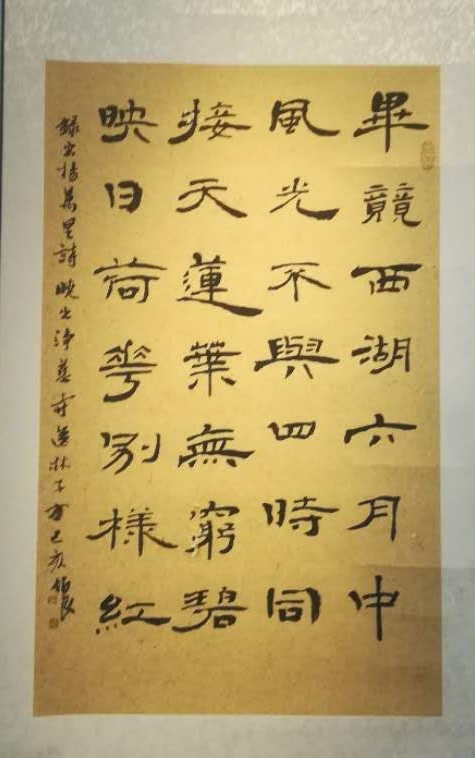 畢竟西湖六月中
風光不與四時同
接天蓮葉無窮碧
映日荷花別樣紅
錄宋楊萬里詩曉出淨慈寺送林子方己亥